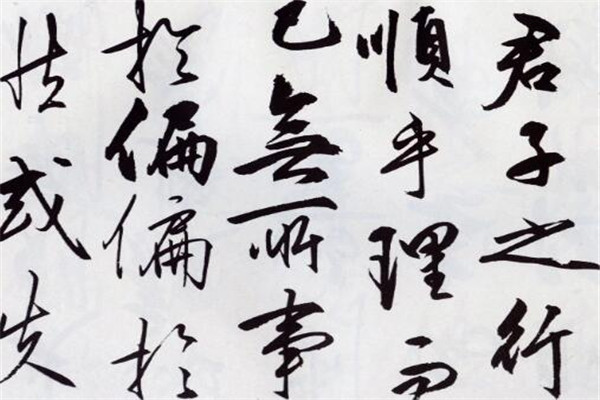 君子之行
順乎理而
已無所事
於偏偏於
或失